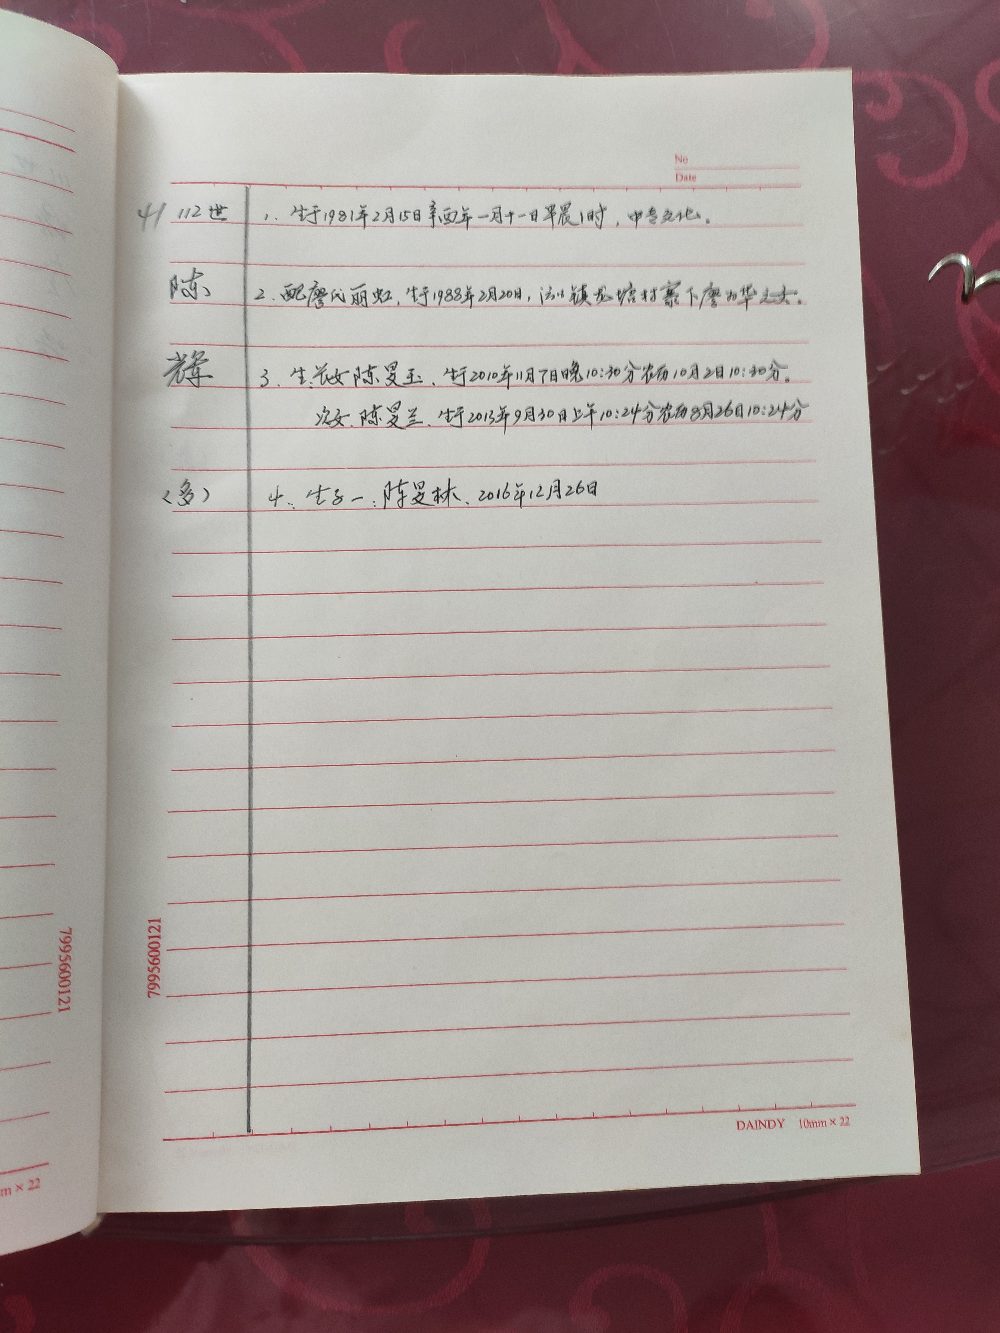 No
Date
41 112世 1、生于1981年2月15日辛酉年一月十一日早晨1时，中专文化。
陈 2、配廖氏丽虹，生于1988年2月20日，镇龙塘村寨下廖为华之女。
光军 3、生：长女陈旻玉、生于2010年11月7日晚10:30分农历10月2日10:30分。
次女、陈旻兰、生于2013年9月30日上午10:24分农历8月26日10:24分
（多） 4、生子一：陈旻林、2016年12月26日
7995600121
7995600121
DAINDY 10mm × 22
m × 22